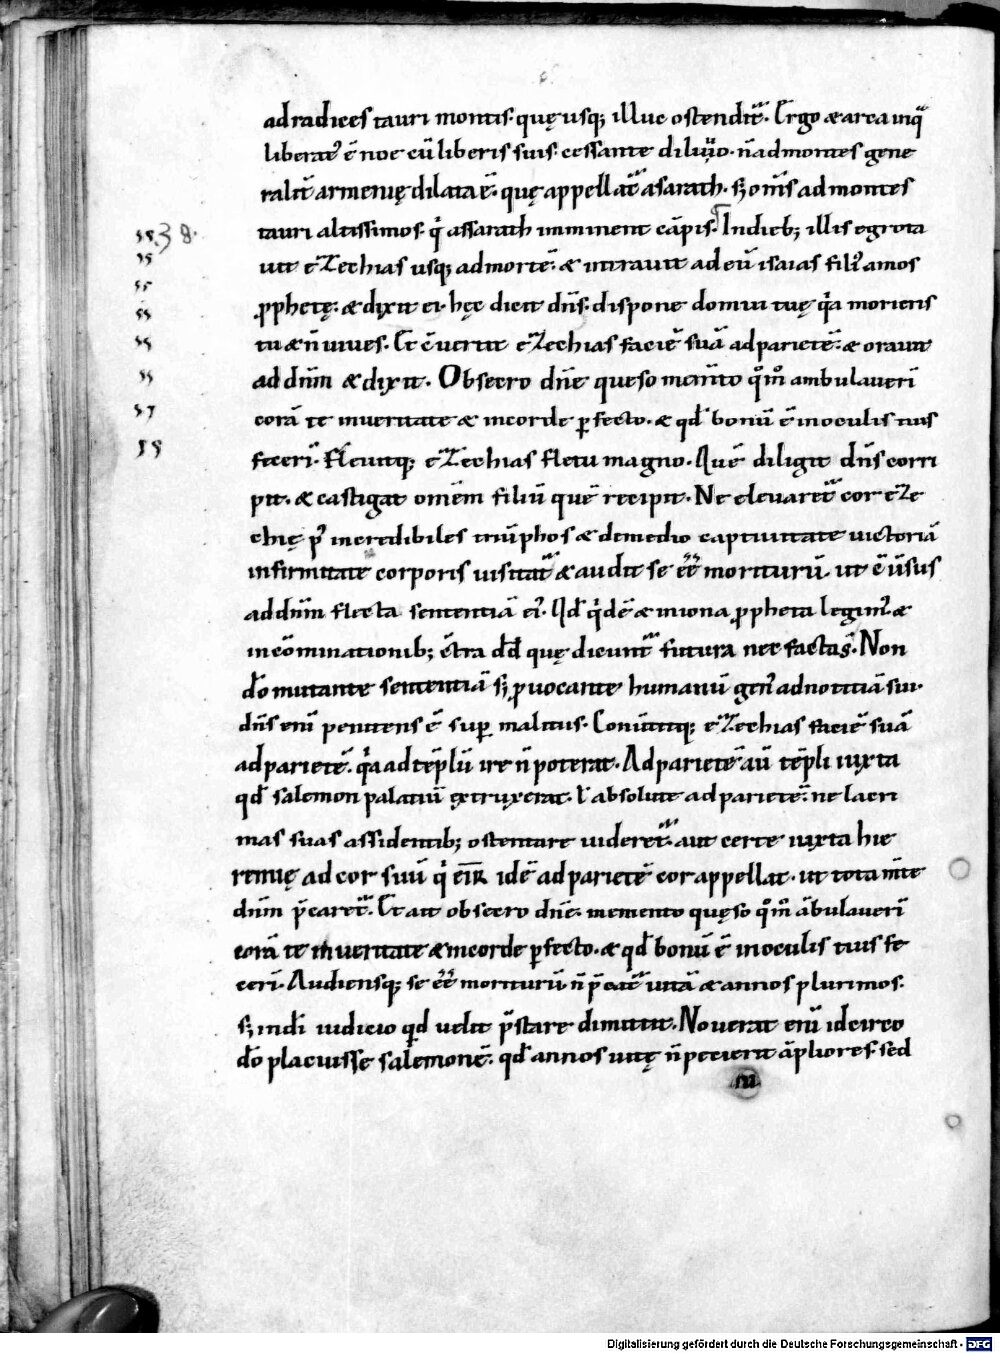 ad radices tauri montis. quę usq; illuc ostendit᷑. Ergo & arca in q̄
liberat᷑ ē noe cū liberis suis. cessante diluuio. ñ ad montes gene
ralit᷑ armenię dilata ē. quę appellat᷑ asarath. sꝫ om̄s ad montes
tauri altissimos. q̇ assarath imminent cāpis. In dieb; illis egrota
uit eZechias usq; ad mortē. & intrauit ad eū isaias fili᷒ amos
ꝓphetę. & dixit ei. hęc dicit dn̄s. dispone domui tuę q̇a morieris
tu & ñ uiues. Et c̄uertit eZechias faciē suā ad parietē. & orauit
ad dn̄m & dixit. Obsecro dn̄e queso mem̄to qͦm̄ ambulauerī
corā te in ueritate & in corde ꝑfecto. & qd̄ bonū ē in oculis tuis
fecerī. Fleuitq; eZechias fletu magno. Quē diligit dn̄s corri
pit. & castigat om̄em filiū quē recipit. Ne eleuaret᷑ cor eZe
chię p᷒ incredibiles triūphos & de medio captiuitate uictoriā
infirmitate corporis uisitat᷑ & audit se ēē moriturū. ut c̄ūsus
ad dn̄m flecta sententiā ei᷒. Qd̄ q̇dē & in iona ꝓpheta legim᷒. &
in cōminationib; c̄tra dd̄ quę dicunt᷑ futura nec facta s̄. Non
dō mutante sententiā sꝫ ꝓuocante humanū gen᷒ ad notitiā sui.
dn̄s enī penitens ē suꝑ malitiis. Conūtitq; eZechias faciē suā
ad parietē. q̇a ad tēplū ire ñ poterat. Ad parietē aū tēpli iuxta
qd̄ salemon palatiū ęxtruxerat. ł absolute ad parietē. ne lacri
mas suas assidentib; ostentare uideret᷑. aut certe iuxta hie
remię ad cor suū q̇ EĪR idē ad parietē cor appellat. ut tota m̄te
dn̄m p̄caret᷑. Et ait obsecro dn̄e. memento quęso qͦm̄ ābulauerī
corā te in ueritate & in corde ꝑfecto. & qd̄ bonū ē in oculis tuis fe
cerī. Audiensq; se ēē moriturū. ñ p̄cat᷑ uitā & annos plurimos.
sꝫ in dī iudicio qd̄ uelit p̄stare dimittit. Nouerat enī idcirco
dō placuisse salemonē. qd̄ annos uitę ñ pecierit āpliores. sed